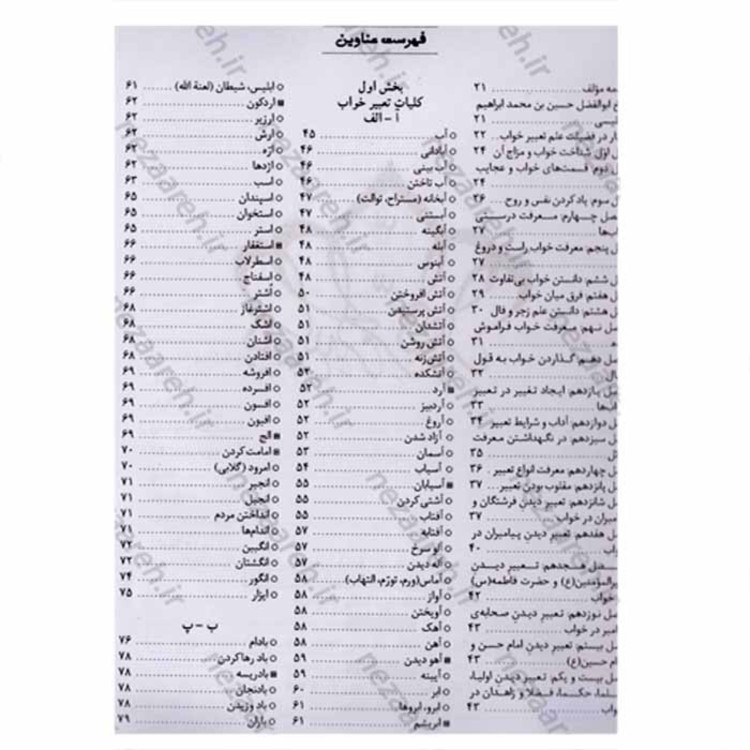 فهرست مناوین
مه مؤلف ۲۱
ع ابوالفضل حسین بن محمد ابراهیم
لیسی ۲۱
ار در فضیلت علم تعبیر خواب ۲۲
ل اول: شناخت خواب و مزاج آن ۲۴
ل دوم: قسمت‌های خواب و عجایب
۲۴
ل سوم: یاد کردن نفس و روح ۲۶
صل چهارم: معرفت درستی
ب‌ها ۲۷
ل پنجم: معرفت خواب راست و دروغ
۲۷
ل ششم: دانستن خواب بی‌تفاوت ۲۸
ل هفتم: فرق میان خواب ۲۹
ل هشتم: دانستن علم زجر و فال ۳۰
ل نهم: معرفت خواب فراموش
ه ۳۱
ل دهم: گذاردن خواب به قول
ال ۳۲
ل یازدهم: ایجاد تغییر در تعبیر
ب‌ها ۳۳
ل دوازدهم: آداب و شرایط تعبیر ۳۴
ل سیزدهم: در نگهداشتن معرفت
۳۵
ل چهاردهم: معرفت انواع تعبیر ۳۶
ل پانزدهم: مقلوب بودن تعبیر ۳۷
ل شانزدهم: تعبیر دیدن فرشتگان و
مبران در خواب ۳۷
ل هفدهم: تعبیر دیدن پیامبران در
واب ۴۰
صل هجدهم: تعبیر دیدن
یرالمؤمنین(ع) و حضرت فاطمه(س)
خواب ۴۲
ل نوزدهم: تعبیر دیدن صحابه‌ی
امبر در خواب ۴۳
ل بیستم: تعبیر دیدن امام حسن و
م حسین(ع) ۴۳
ل بیست و یکم: تعبیر دیدن اولیاء
لما، حکما، فضلا و زاهدان در
واب ۴۳
بخش اول
کلیات تعبیر خواب
آ - الف
آب ۴۵
آبادانی ۴۶
آب بینی ۴۶
آب تاختن ۴۶
آبخانه (مستراح، توالت) ۴۷
آبستنی ۴۷
آبگینه ۴۸
آبله ۴۸
آبنوس ۴۸
آتش ۴۸
آتش افروختن ۵۰
آتش پرستیدن ۵۱
آتشدان ۵۱
آتش روشن ۵۱
آتش‌زنه ۵۱
آتشکده ۵۲
آرد ۵۲
آردبیز ۵۲
آروغ ۵۲
آزاد شدن ۵۲
آسمان ۵۳
آسیاب ۵۴
آسیابان ۵۵
آشتی کردن ۵۵
آفتاب ۵۵
آفتابه ۵۷
آلو سرخ ۵۷
آله دیدن ۵۷
آماس (ورم، تورّم، التهاب) ۵۸
آواز ۵۸
آویختن ۵۸
آهک ۵۸
آهن ۵۸
آهو دیدن ۵۹
آیینه ۵۹
ابر ۶۰
ابرو، ابروها ۶۱
ابریشم ۶۱
ابلیس، شیطان (لعنة الله) ۶۱
اردکون ۶۲
ارزیر ۶۲
ارش ۶۲
ارّه ۶۲
اژدها ۶۲
اسب ۶۳
اسپندان ۶۵
استخوان ۶۵
استر ۶۵
استغفار ۶۶
اسطرلاب ۶۶
اسفناج ۶۶
اُشتر ۶۶
اشترغاز ۶۸
اشک ۶۸
اشنان ۶۸
افتادن ۶۸
افروشه ۶۹
افسرده ۶۹
افسون ۶۹
افیون ۶۹
الج ۶۹
امامت کردن ۷۰
امرود (گلابی) ۷۰
انجیر ۷۱
انجیل ۷۱
انداختن مردم ۷۱
اندام‌ها ۷۱
انگبین ۷۲
انگشتان ۷۲
انگور ۷۴
ایزار ۷۵
ب - پ
بادام ۷۶
باد رها کردن ۷۸
بادریسه ۷۸
بادنجان ۷۸
باد وزیدن ۷۸
باران ۷۹
nezaareh.ir